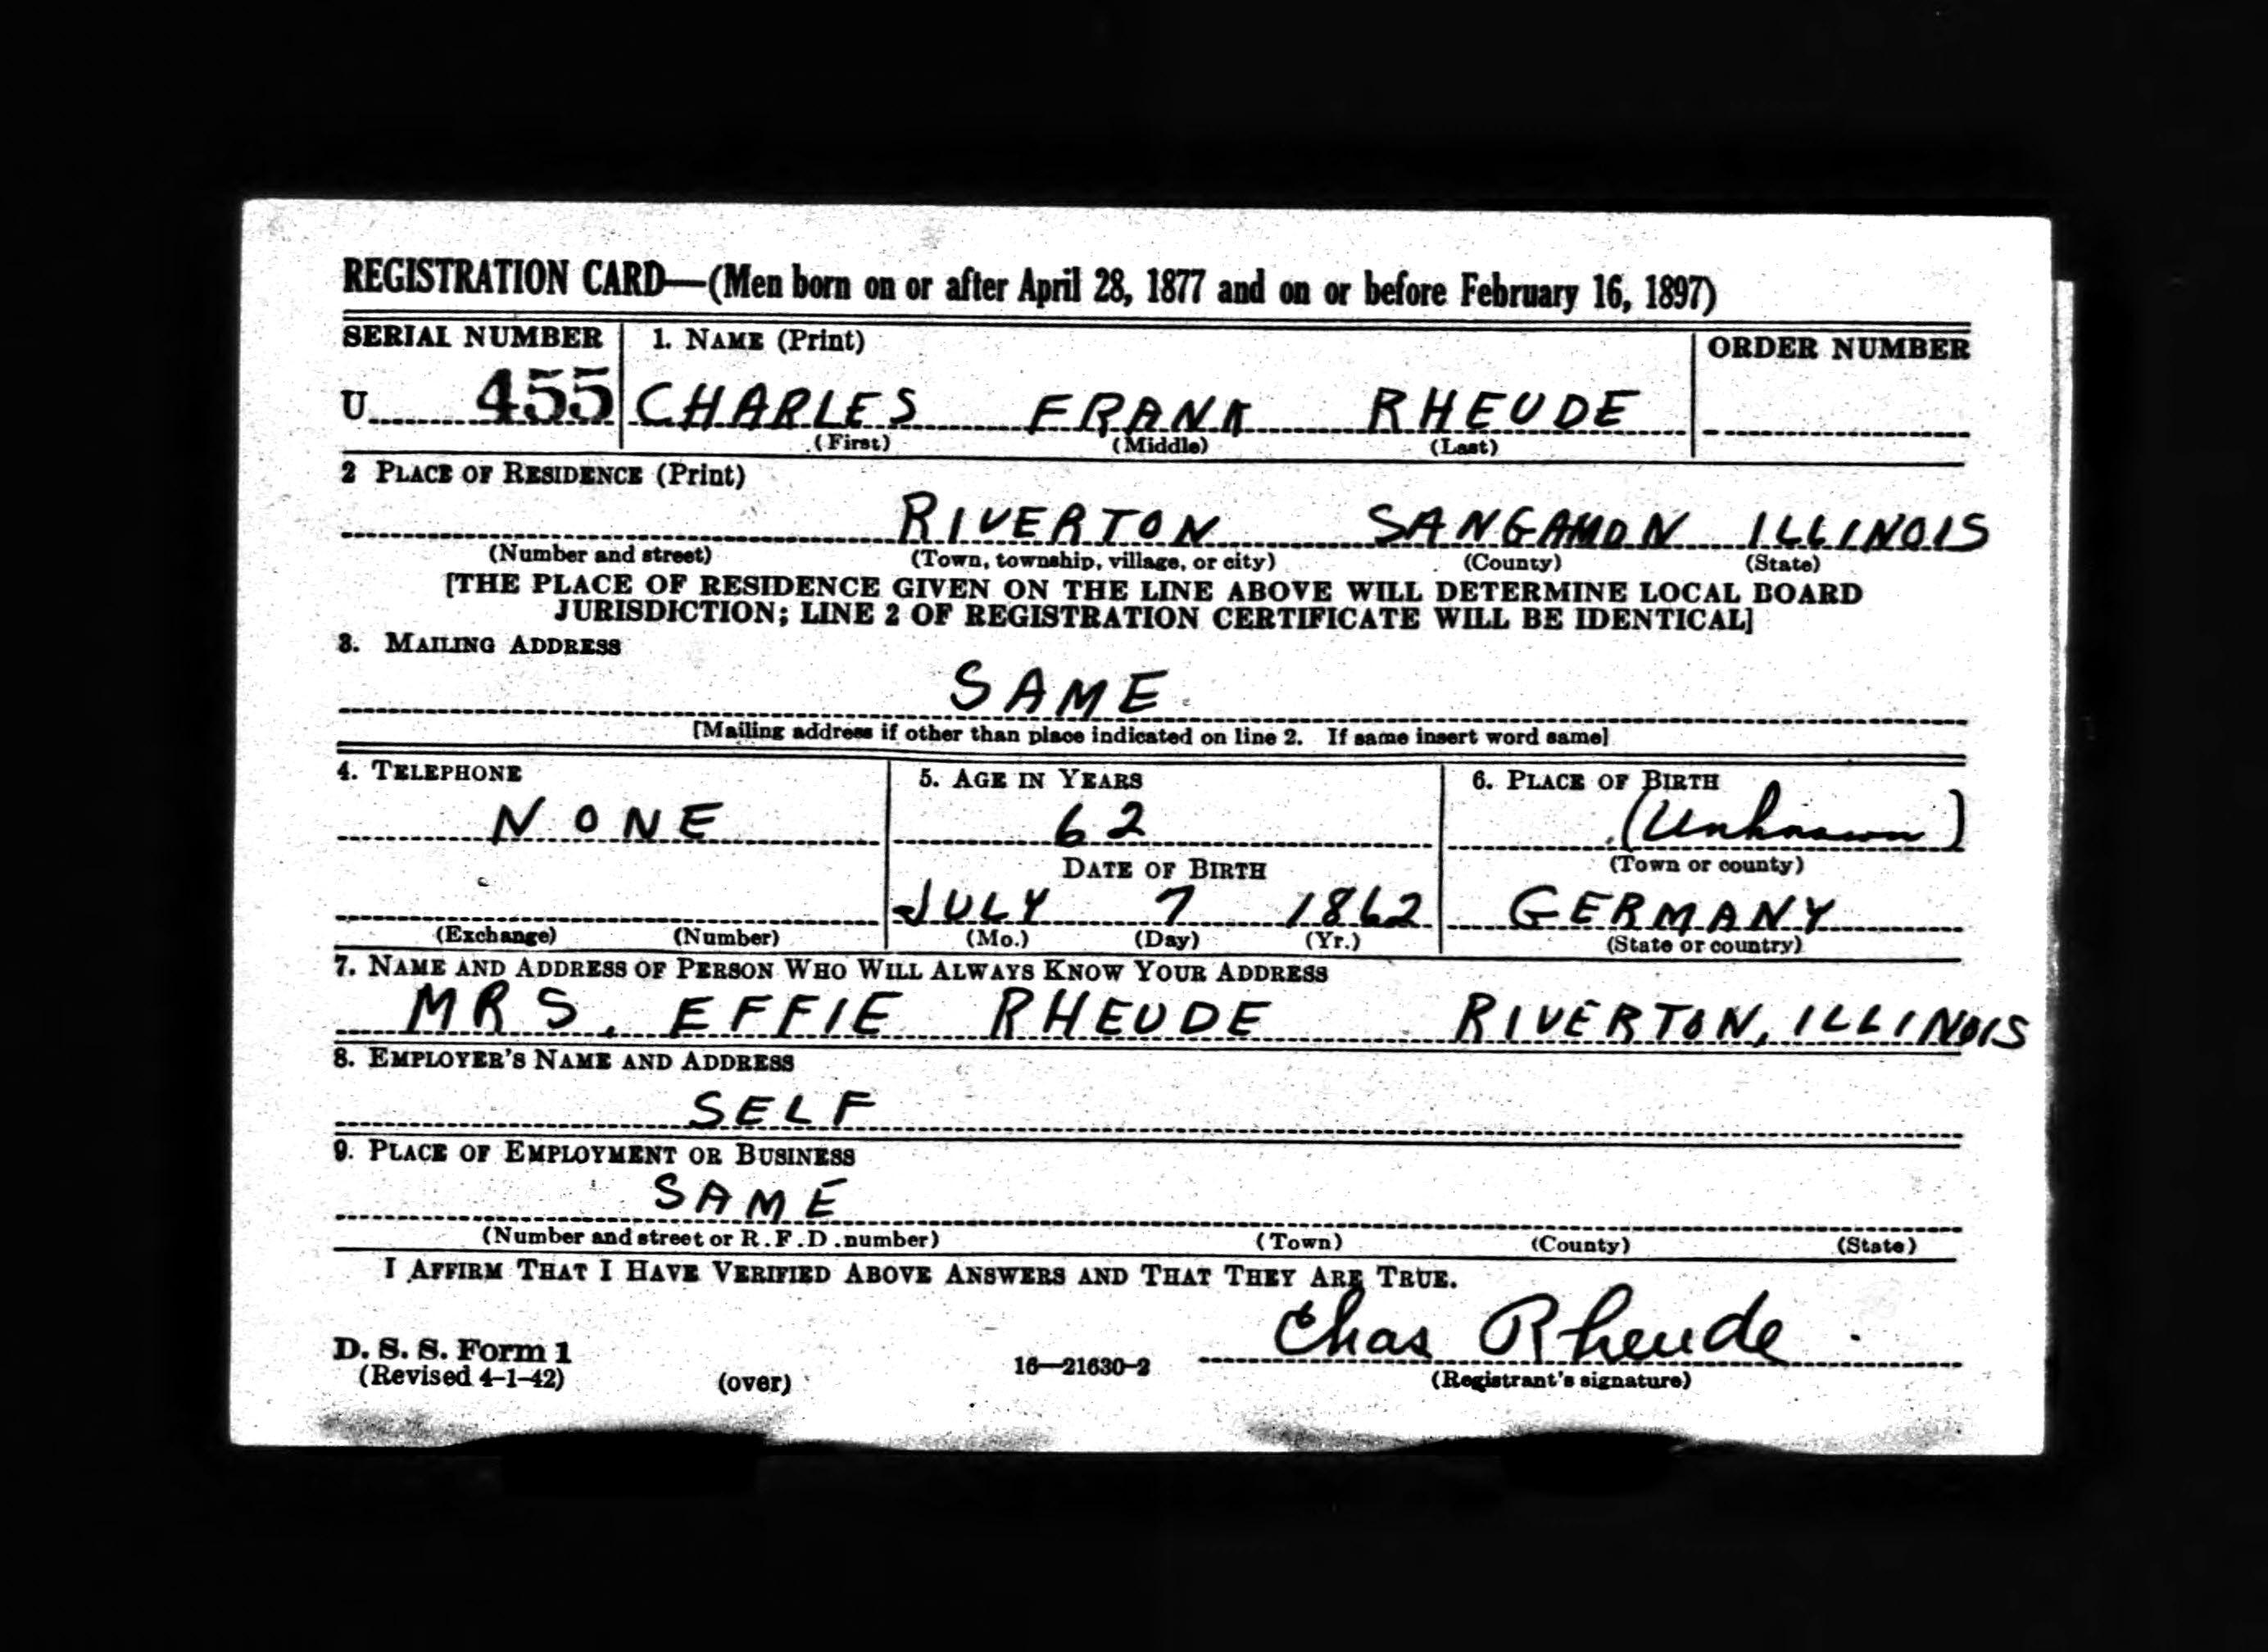 REGISTRATION CARD—(Men born on or after April 28, 1877 and on or before February 16, 1897)
SERIAL NUMBER 1. NAME (Print) ORDER NUMBER
U 455 CHARLES FRANK RHEUDE
(First) (Middle) (Last)
2 PLACE OF RESIDENCE (Print)
RIVERTON SANGAMON ILLINOIS
(Number and street) (Town, township, village, or city) (County) (State)
[THE PLACE OF RESIDENCE GIVEN ON THE LINE ABOVE WILL DETERMINE LOCAL BOARD
JURISDICTION; LINE 2 OF REGISTRATION CERTIFICATE WILL BE IDENTICAL]
3. MAILING ADDRESS
SAME
[Mailing address if other than place indicated on line 2. If same insert word same]
4. TELEPHONE 5. AGE IN YEARS 6. PLACE OF BIRTH
NONE 62 (Unknown)
DATE OF BIRTH (Town or county)
JULY 7 1862 GERMANY
(Exchange) (Number) (Mo.) (Day) (Yr.) (State or country)
7. NAME AND ADDRESS OF PERSON WHO WILL ALWAYS KNOW YOUR ADDRESS
MRS. EFFIE RHEUDE RIVERTON, ILLINOIS
8. EMPLOYER'S NAME AND ADDRESS
SELF
9. PLACE OF EMPLOYMENT OR BUSINESS
SAME
(Number and street or R.F.D. number) (Town) (County) (State)
I AFFIRM THAT I HAVE VERIFIED ABOVE ANSWERS AND THAT THEY ARE TRUE.
Chas Rheude
D. S. S. Form 1
(Revised 4-1-42) (over) 16—21630-2 (Registrant's signature)